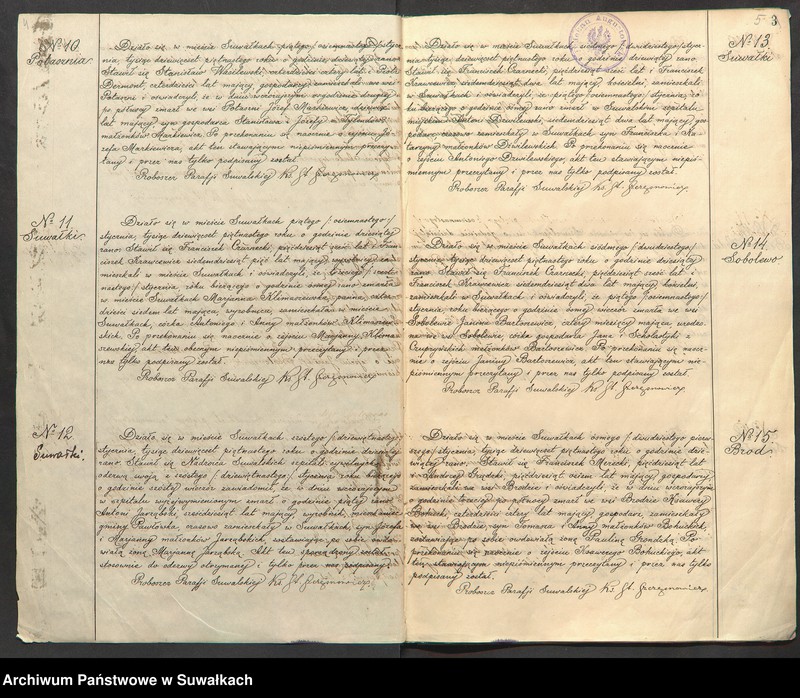 № 10.
Potasznia
Działo się w mieście Suwałkach piątego /osiemnastego/ stycz-
nia, tysiąc dziewięćset piętnastego roku o godzinie dziewiątej rano.
Stawił się Stanisław Wasilewski, czterdzieści cztery lat i
czterdzieści lat mający, gospodarze zamieszkali we wsi
Potaszni i oświadczyli, że w dniu wczorajszym o godzinie drugiej
po północy zmarł we wsi Potaszni Józef Markiewicz, dziewięć
lat mający syn gospodarza Stanisława i Józefy
małżonków Markiewicz. Po przekonaniu się naocznie o zejściu Jó-
zefa Markiewicza, akt ten stawającym niepiśmiennym przeczy-
tany i przez nas tylko podpisany został.
Proboszcz Parafji Suwalskiej Ks. St.
№ 11.
Suwałki.
Działo się w mieście Suwałkach piątego /osiemnastego/
stycznia, tysiąc dziewięćset piętnastego roku o godzinie dziesiątej
rano. Stawił się Franciszek Czarnecki, pięćdziesiąt sześć lat i Fran-
ciszek Krawcewicz siedemdziesiąt pięć lat mający, za-
mieszkali w mieście Suwałkach i oświadczyli, że trzeciego /szest-
nastego/ stycznia, roku bieżącego o godzinie ósmej rano zmarła
w mieście Suwałkach Marjanna Klimaszewska, panna, czter-
dzieści siedem lat mająca, wyrobnica, zamieszkała w mieście
Suwałkach, córka Antoniego i Anny małżonków Klimaszew-
skich. Po przekonaniu się naocznie o zejściu Marjanny Klima-
szewskiej akt ten obecnym niepiśmiennym przeczytany i przez
nas tylko podpisany został.
Proboszcz Parafji Suwalskiej Ks. St.
№ 12
Suwałki.
Działo się w mieście Suwałkach szóstego /dziewiętnastego/
stycznia, tysiąc dziewięćset piętnastego roku o godzinie dziewiątej
rano. Stawił się Nadzorca Suwalskich szpitali cywilnych
odezwą swoją z szóstego /dziewiętnastego/ stycznia roku bieżącego
o godzinie szóstej wieczór zawiadomił, że w dniu wczorajszym
w szpitalu wyżejwymienionym zmarł o godzinie piątej rano
Antoni Jarząbski, sześćdziesiąt lat mający wyrobnik, mieszkaniec
gminy Pawłówka, czasowo zamieszkały w Suwałkach, syn Józefa
i Marjanny małżonków Jarząbskich, zostawiając po sobie owdo-
wiałą żonę Marjannę Jarząbską. Akt ten sporządzony został
stosownie do odezwy otrzymanej i tylko przez nas podpisany.
Proboszcz Parafji Suwalskiej Ks. St.
5 3
№ 13.
Suwałki
Działo się w mieście Suwałkach siódmego /dwudziestego/ stycz-
nia tysiąc dziewięćset piętnastego roku o godzinie dziewiątej rano.
Stawił się Franciszek Czarnecki, pięćdziesiąt sześć lat i Franciszek
Krawcewicz siedemdziesiąt dwa lat mający, kościelni, zamieszkali
w Suwałkach i oświadczyli, że piątego /osiemnastego/ stycznia, ro-
ku bieżącego o godzinie ósmej rano zmarł w Suwalskim szpitalu
miejskim Antoni Dziwilewski, siedemdziesiąt dwa lat mający, gos-
podarz czasowo zamieszkały w Suwałkach syn Franciszka i Ka-
tarzyny małżonków Dziwilewskich. Po przekonaniu się naocznie
o zejściu Antoniego Dziwilewskiego, akt ten stawającym niepiś-
miennym przeczytany i przez nas tylko podpisany został.
Proboszcz Parafji Suwalskiej Ks. St.
№ 14.
Sobolewo
Działo się w mieście Suwałkach siódmego /dwudziestego/
stycznia, tysiąc dziewięćset piętnastego roku o godzinie dziesiątej
rano. Stawił się Franciszek Czarnecki, pięćdziesiąt sześć lat i
Franciszek Krawcewicz siedemdziesiąt dwa lat mający, kościelni,
zamieszkali w Suwałkach i oświadczyli, że piątego /osiemnastego/
stycznia, roku bieżącego o godzinie ósmej wieczór zmarła we wsi
Sobolewie Janina Bartoszewicz, cztery miesięcy mająca urodzo-
na we wsi Sobolewie córka gospodarza Jana i Scholastyki z
małżonków Bartoszewicz. Po przekonaniu się naocz-
nie o zejściu Janiny Bartoszewicz, akt ten stawającym nie-
piśmiennym przeczytany i przez nas tylko podpisany został.
Proboszcz Parafji Suwalskiej Ks. St.
№ 15.
Bród
Działo się w mieście Suwałkach ósmego /dwudziestego pierw-
szego/ stycznia, tysiąc dziewięćset piętnastego roku o godzinie dzie-
wiątej rano. Stawił się Franciszek Merecki, pięćdziesiąt lat
i pięćdziesiąt osiem lat mający gospodarze,
zamieszkali we wsi Brodzie i oświadczyli, że w dniu wczorajszym
o godzinie trzeciej po północy zmarł we wsi Brodzie Ksawery
Bohucki, czterdzieści cztery lat mający, gospodarz, zamieszkały
we wsi Brodzie, syn Tomasza i Anny małżonków Bohuckich,
zostawiając po sobie owdowiałą żonę Paulinę Po
przekonaniu się naocznie o zejściu Ksawerego Bohuckiego, akt
ten stawającym niepiśmiennym przeczytany i przez nas tylko
podpisany został.
Proboszcz Parafji Suwalskiej Ks. St.
Archiwum Państwowe w Suwałkach